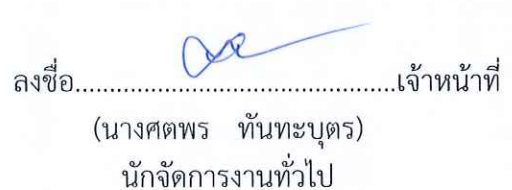 ลงชื่อ................................................เจ้าหน้าที่
(นางศตพร ทันทะบุตร)
นักจัดการงานทั่วไป